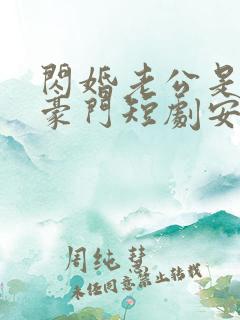 閃婚老公是
豪門短劇安
周純彗
未经同意禁止转载